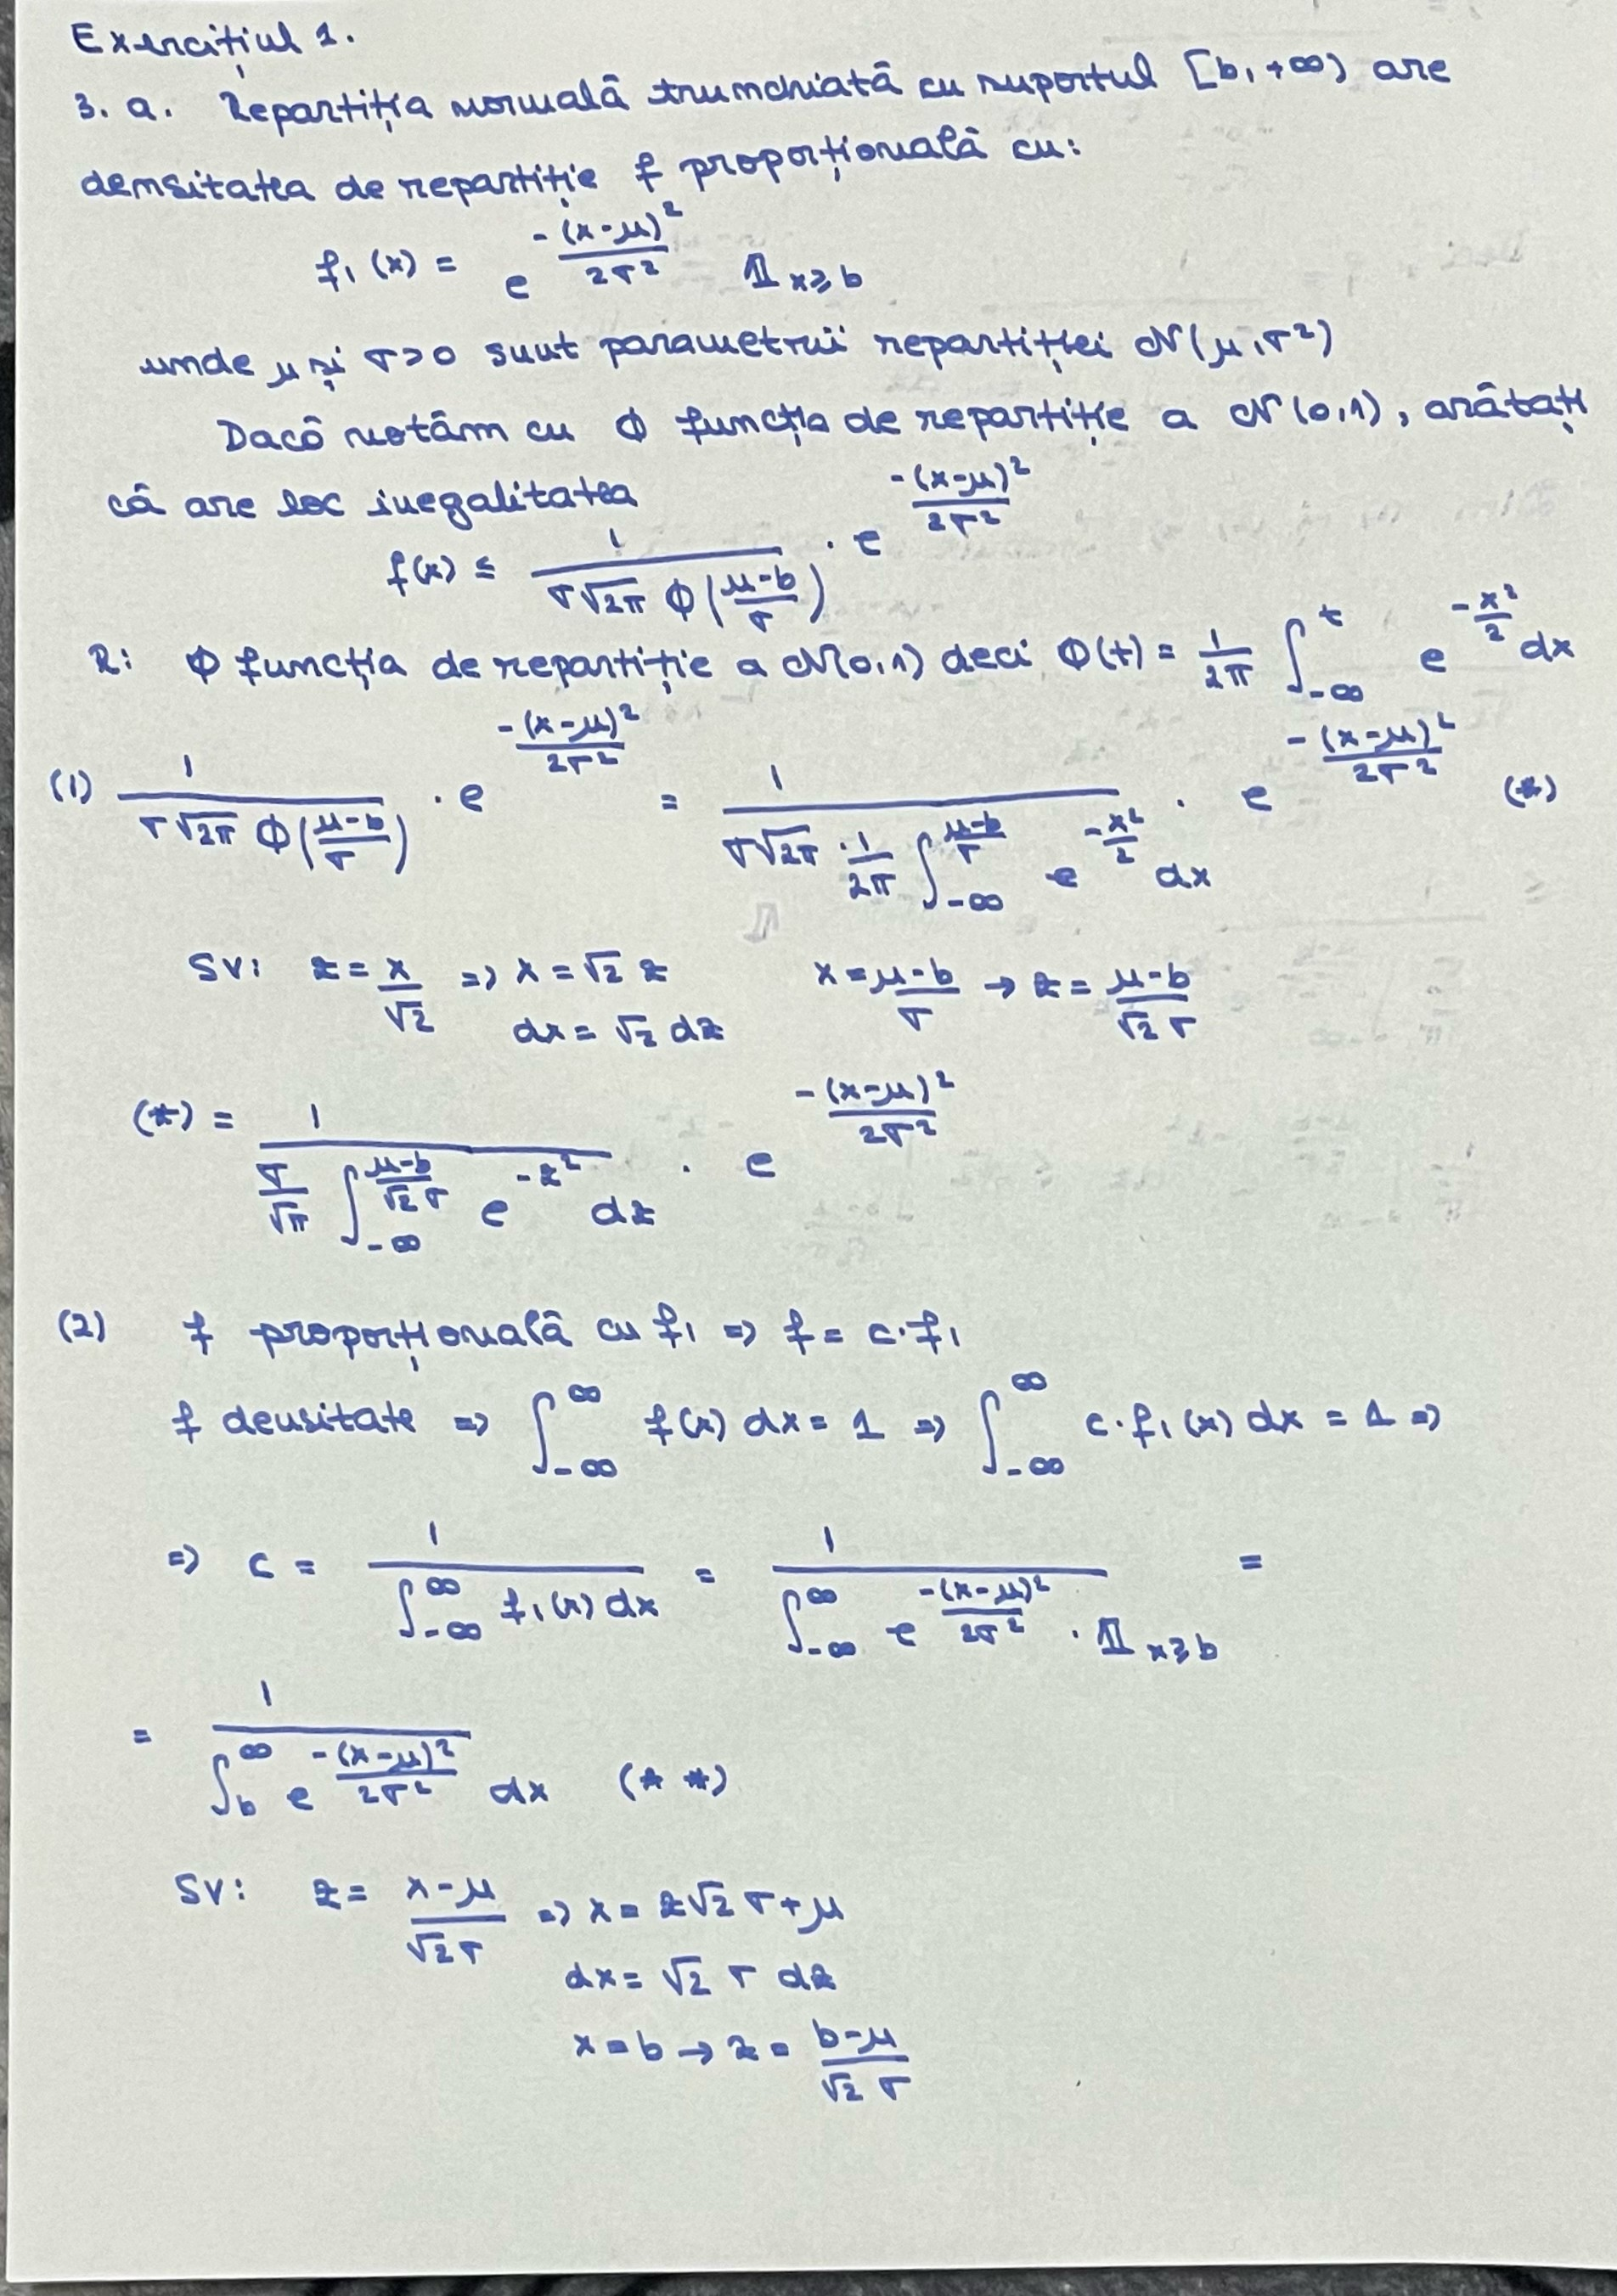 Exercițiul 1.
3. a. Repartiția normală trunchiată cu suportul [b, +∞) are
densitatea de repartiție f proporțională cu:
f₁(x) = e^{-(x-μ)²/2σ²} 𝟙_{x≥b}
unde μ și σ>0 sunt parametrii repartiției N(μ,σ²)
Dacă notăm cu Φ funcția de repartiție a N(0,1), arătați
că are loc inegalitatea
f(x) ≤ 1/(σ√2π Φ((μ-b)/σ)) · e^{-(x-μ)²/2σ²}
R: Φ funcția de repartiție a N(0,1) deci Φ(t) = 1/2π ∫_{-∞}^{t} e^{-x²/2} dx
(1) 1/(σ√2π Φ((μ-b)/σ)) · e^{-(x-μ)²/2σ²} = 1/(σ√2π · 1/2π ∫_{-∞}^{(μ-b)/σ} e^{-x²/2} dx) · e^{-(x-μ)²/2σ²} (*)
SV: z = x/√2 => x = √2 z x = (μ-b)/σ → z = (μ-b)/(√2 σ)
dx = √2 dz
(*) = 1/(σ/√π ∫_{-∞}^{(μ-b)/(√2 σ)} e^{-z²} dz) · e^{-(x-μ)²/2σ²}
(2) f proporțională cu f₁ => f = c·f₁
f densitate => ∫_{-∞}^{∞} f(x) dx = 1 => ∫_{-∞}^{∞} c·f₁(x) dx = 1 =>
=> c = 1/(∫_{-∞}^{∞} f₁(x) dx) = 1/(∫_{-∞}^{∞} e^{-(x-μ)²/2σ²} · 𝟙_{x≥b}) =
= 1/(∫_{b}^{∞} e^{-(x-μ)²/2σ²} dx) (* *)
SV: z = (x-μ)/(√2 σ) => x = z√2 σ + μ
dx = √2 σ dz
x = b → z = (b-μ)/(√2 σ)